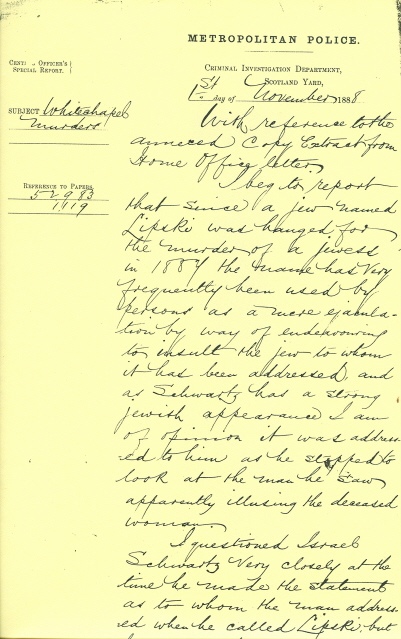 METROPOLITAN POLICE.
CRIMINAL INVESTIGATION DEPARTMENT,
SCOTLAND YARD,
1st day of November 1888
CENTRAL OFFICER'S
SPECIAL REPORT.
SUBJECT Whitechapel
Murders
REFERENCE TO PAPERS
52983
1119
With reference to the
annexed Copy Extract from
Home Office letter.
I beg to report
that since a jew named
Lipski was hanged for
the murder of a jewess
in 1887 the name has very
frequently been used by
persons as a mere ejacula-
tion by way of endeavouring
to insult the jew to whom
it has been addressed, and
as Schwartz has a strong
jewish appearance I am
of opinion it was address-
ed to him as he stopped to
look at the man he saw
apparently illusing the deceased
woman.
I questioned Israel
Schwartz very closely at the
time he made the statement
as to whom the man address-
ed when he called Lipski, but